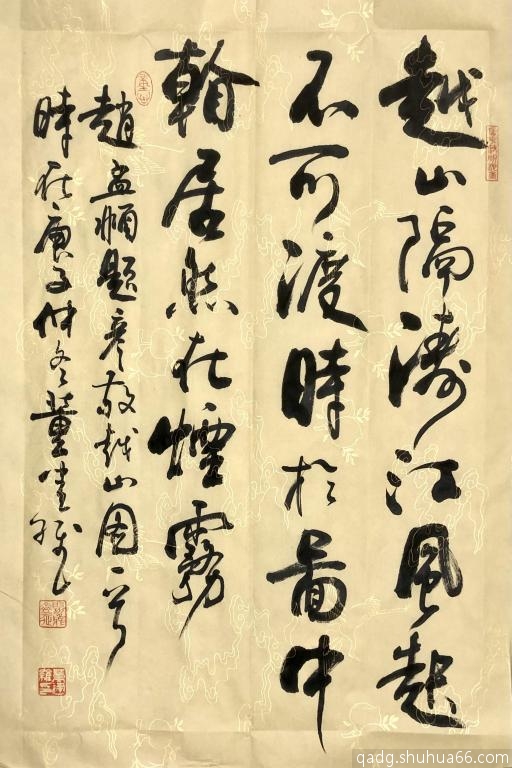 越山隔濤江風起
不可渡時於圖中
看居然在煙霧
趙孟頫題彦敬越山圖一首
時在庚子仲冬董
qadg.shuhua66.com